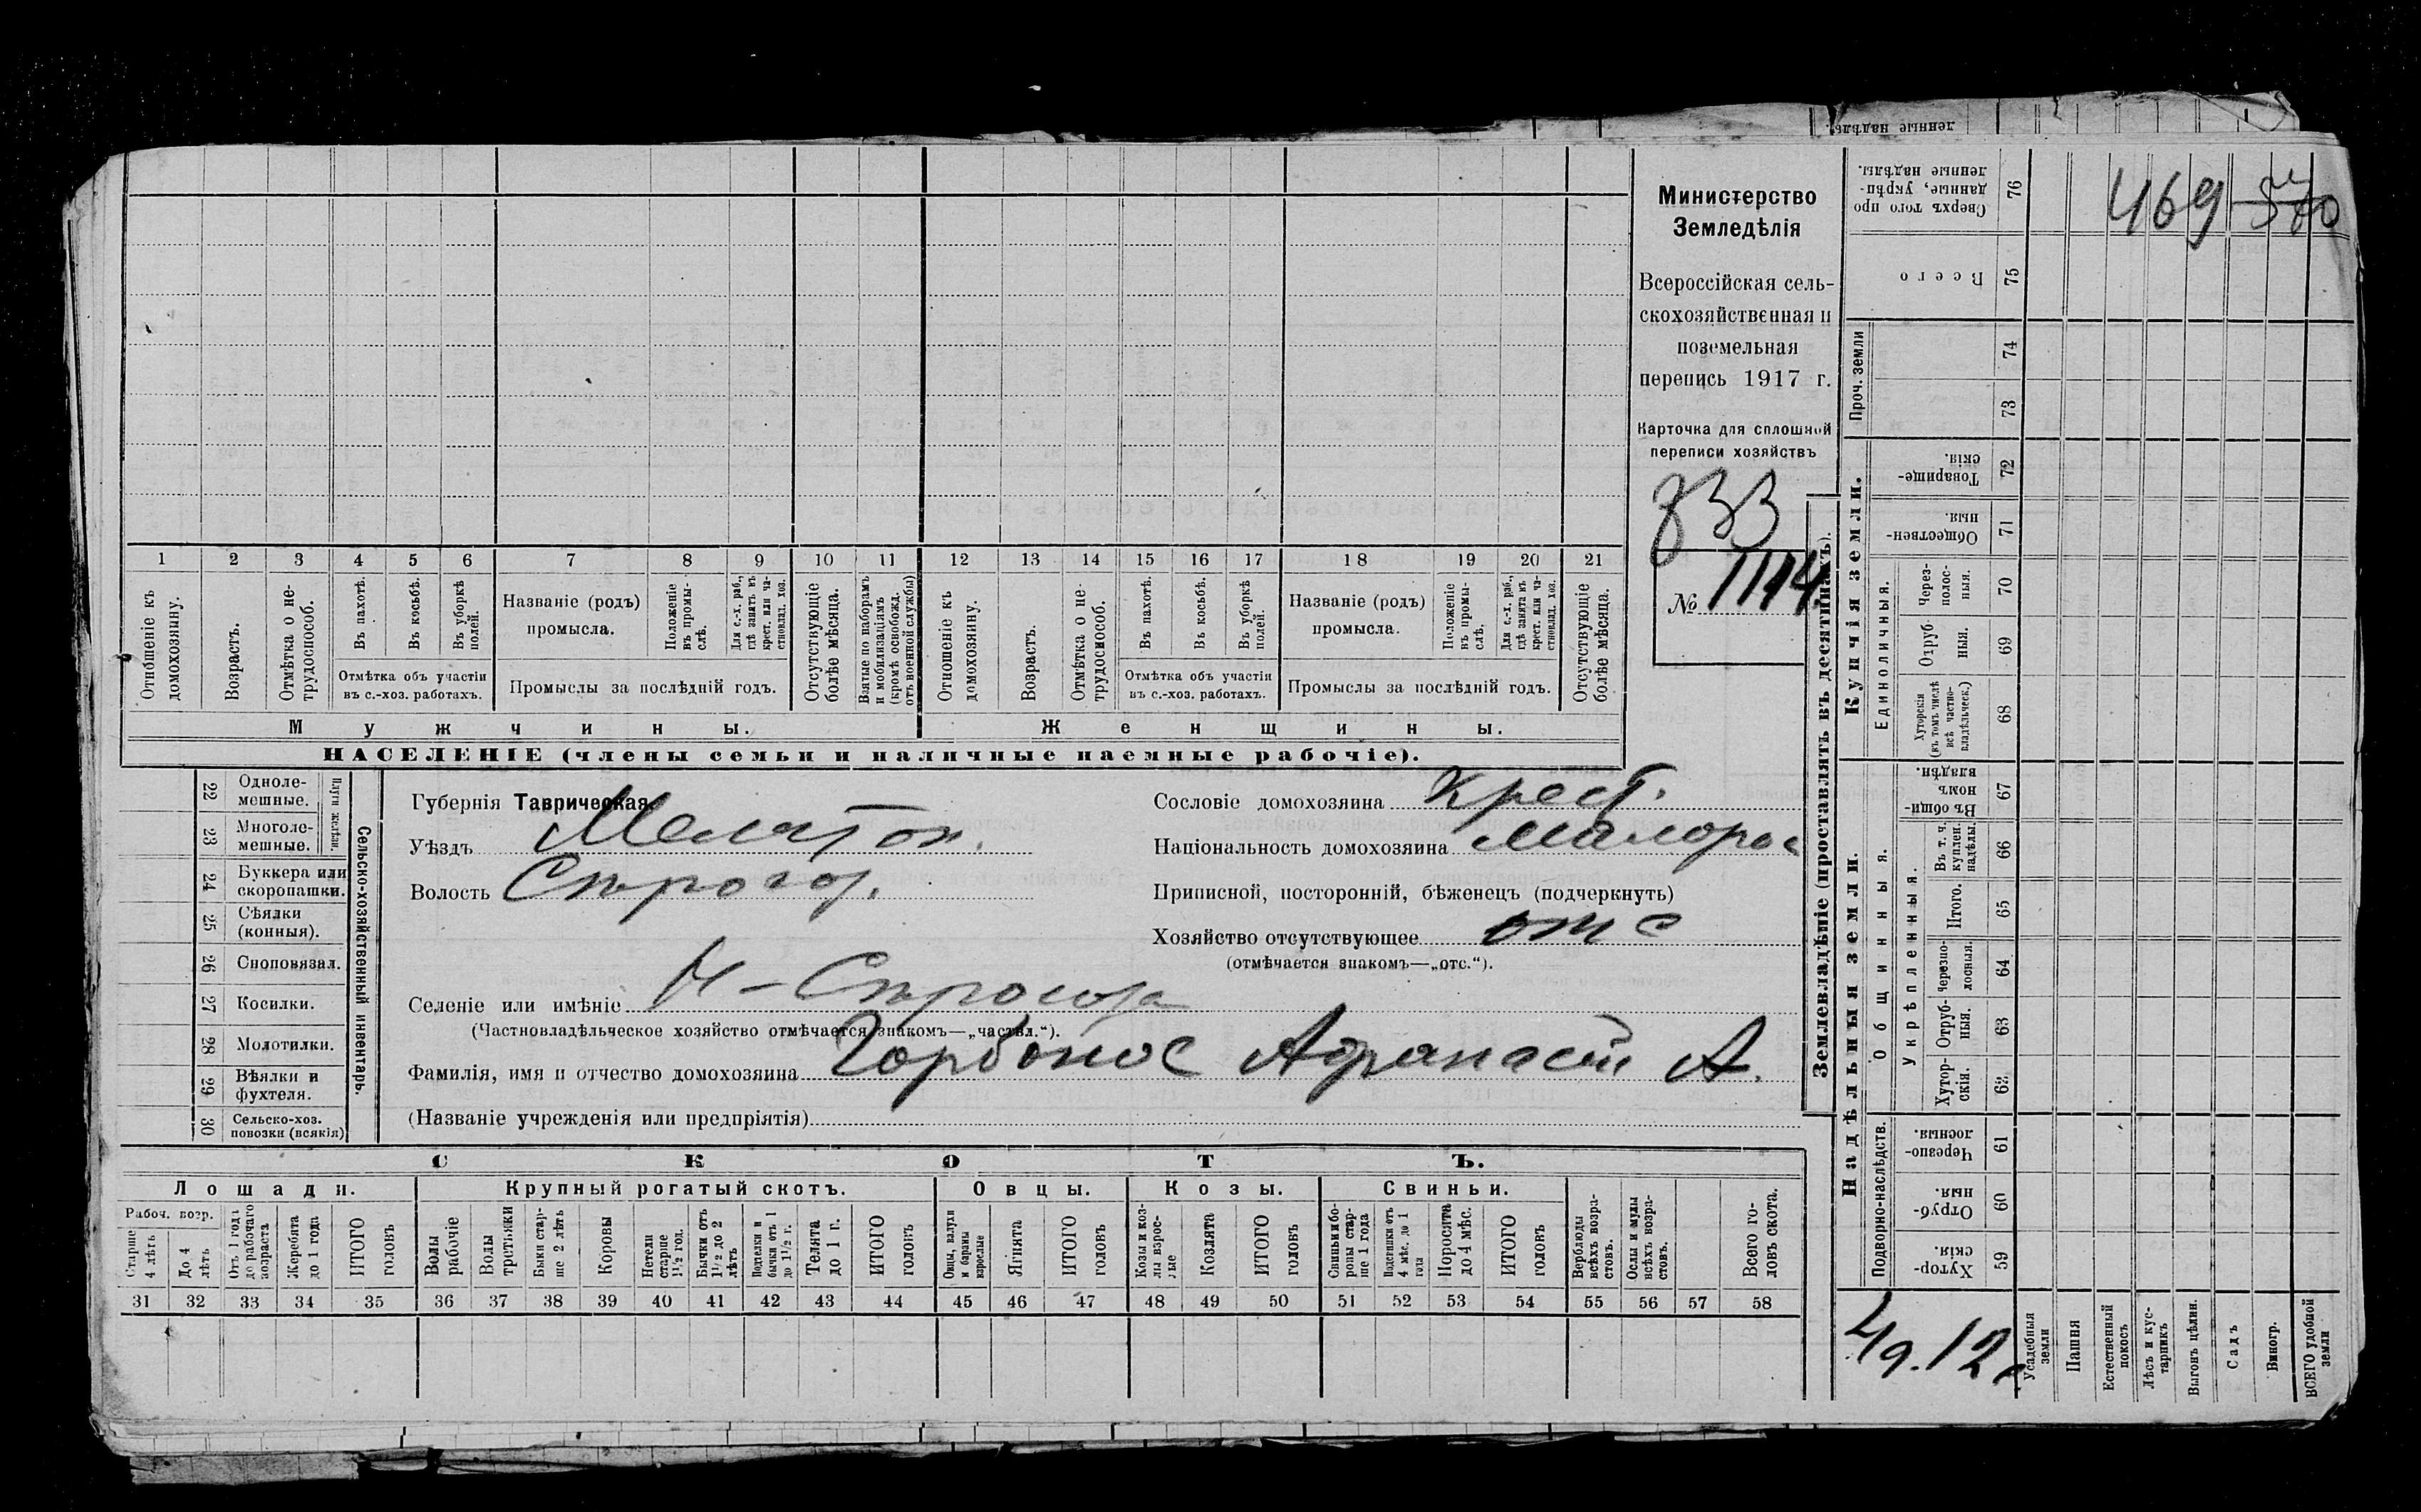 денные надѣлы.
Министерство
Земледѣлія
Всероссійская сель-
скохозяйственная и
поземельная
перепись 1917 г.
Карточка для сплошной
переписи хозяйствъ
833
№ 1114
1 2 3 4 5 6 7 8 9 10 11 12 13 14 15 16 17 18 19 20 21
Отношеніе къ домохозяину.
Возрастъ.
Отмѣтка о не-трудоспособ.
Въ пахотѣ.
Въ косьбѣ.
Въ уборкѣ полей.
Отмѣтка объ участіи
въ с.-хоз. работахъ.
Названіе (родъ)
промысла.
Положеніе въ промы-слѣ.
Для с.-х. раб., гдѣ занятъ въ крест. или ча-стновлад. хоз.
Промыслы за послѣдній годъ.
Отсутствующіе болѣе мѣсяца.
Взятые по наборамъ и мобилизаціямъ (кромѣ освобожд. отъ военной службы)
Отношеніе къ домохозяину.
Возрастъ.
Отмѣтка о не-трудоспособ.
Въ пахотѣ.
Въ косьбѣ.
Въ уборкѣ полей.
Отмѣтка объ участіи
въ с.-хоз. работахъ.
Названіе (родъ)
промысла.
Положеніе въ промы-слѣ.
Для с.-х. раб., гдѣ занята въ крест. или ча-стновлад. хоз.
Промыслы за послѣдній годъ.
Отсутствующіе болѣе мѣсяца.
Мужчины.
Женщины.
НАСЕЛЕНІЕ (члены семьи и наличные наемные рабочіе).
22 Одноле-мешные.
23 Многоле-мешные.
Плуги желѣзн.
24 Буккера или скоропашки.
25 Сѣялки (конныя).
26 Сноповязал.
27 Косилки.
28 Молотилки.
29 Вѣялки и фухтеля.
30 Сельско-хоз. повозки (всякія)
Сельско-хозяйственный инвентарь.
Губернія Таврическая
Уѣздъ Мелитоп.
Волость Сѣрогоз.
Селеніе или имѣніе Н-Сѣрогозы
(Частновладѣльческое хозяйство отмѣчается знакомъ—„частвл.“).
Фамилія, имя и отчество домохозяина Горбонос Афанасій А.
(Названіе учрежденія или предпріятія)
Сословіе домохозяина Крест.
Національность домохозяина малорос
Приписной, посторонній, бѣженецъ (подчеркнуть)
Хозяйство отсутствующее отс
(отмѣчается знакомъ—„отс.“).
СКОТЪ.
Лошади.
Крупный рогатый скотъ.
Овцы.
Козы.
Свиньи.
Рабоч. возр.
Старше 4 лѣтъ
До 4 лѣтъ
Отъ 1 года до рабочаго возраста
Жеребята до 1 года
ИТОГО головъ
Волы рабочіе
Волы третьяки
Быки стар-ше 2 лѣтъ
Коровы
Нетели старше 1½ год.
Бычки отъ 1½ до 2 лѣтъ
Подтелки и бычки отъ 1 до 1½ г.
Телята до 1 г.
ИТОГО головъ
Овцы, валухи и бараны взрослые
Ягнята
ИТОГО головъ
Козы и коз-лы взрос-лые
Козлята
ИТОГО головъ
Свиньи и бо-ровы стар-ше 1 года
Подсвинки отъ 4 мѣс. до 1 года
Поросята до 4 мѣс.
ИТОГО головъ
Верблюды всѣхъ возра-стовъ.
Ослы и мулы всѣхъ возра-стовъ.
Всего го-ловъ скота.
31 32 33 34 35 36 37 38 39 40 41 42 43 44 45 46 47 48 49 50 51 52 53 54 55 56 57 58
Землевладѣніе (проставлять въ десятинахъ).
Купчія земли.
Надѣльныя земли.
Сверхъ того про-данные, укрѣп-ленные надѣлы. 76
469
Всего 75
Проч. земли
74
73
Товарище-скія. 72
Обществен-ныя. 71
Единоличныя.
Через-полос-ныя. 70
Отруб-ныя. 69
Хуторскія (въ томъ числѣ всѣ частно-владѣльческ.) 68
Общинныя.
Въ общин-номъ владѣн. 67
Укрѣпленныя.
Въ т. ч. куплен. надѣлы. 66
Итого. 65
Черезпо-лосныя. 64
Отруб-ныя. 63
Хутор-скія. 62
Подворно-наслѣдств.
Черезпо-лосныя. 61
Отруб-ныя. 60
Хутор-скія. 59
Усадебныя земли
Пашня
Естественный покосъ
Лѣсъ и кус-тарникъ
Выгонъ цѣлин.
Садъ
Виногр.
ВСЕГО удобной земли